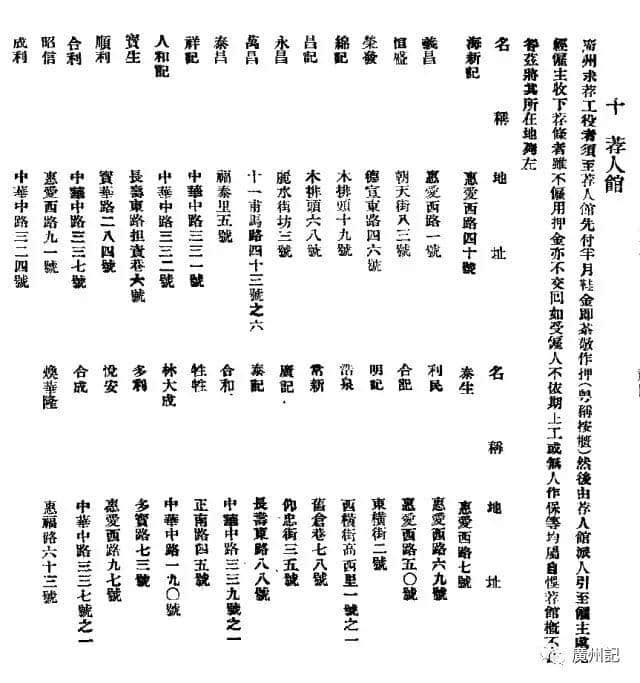 十 荐人館
廣州求荐工役者須至荐人館先付半月鞋金即茶敬作押(粤稱按櫃)然後由荐人館派人引至僱主處
經僱主收下荐條者雖不僱用押金亦不交回如受僱人不依期上工或無人作保等均屬自悞荐館槪不
茲將其所在地列左
名稱 地址
海新記 惠愛西路四十號
義昌 惠愛西路一號
恒盛 朝天街八三號
榮發 德宣東路四六號
綿記 木排頭十九號
昌記 木排頭六八號
永昌 麗水街坊三號
萬昌 十一甫馬路四十三號之六
泰昌 福泰里五號
祥記 中華中路三三一號
人和記 中華中路三三二號
寶生 長壽東路担賣巷六號
順利 寶華路二八四號
合利 中華中路三三七號
昭信 惠愛西路九一號
成利 中華中路三二四號
名稱 地址
泰生 惠愛西路七號
利民 惠愛西路六九號
合記 惠愛西路五〇號
明記 東橫街二號
浩泉 西橫街高西里一號之一
常新 舊倉巷七八號
廣記 仰忠街三五號
泰記 長壽東路八八號
合和 中華中路三三九號之一
牲牲 正南路四五號
林大成 中華中路一九〇號
多利 多寶路七三號
悅安 惠愛西路九七號
合成 中華中路三三七號之一
煥華隆 惠福路六十三號
廣州記